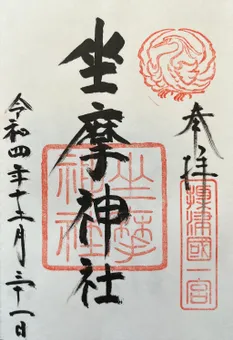 奉拝
摂津國一宮
坐摩神社
坐摩神社
令和四年十二月三十一日